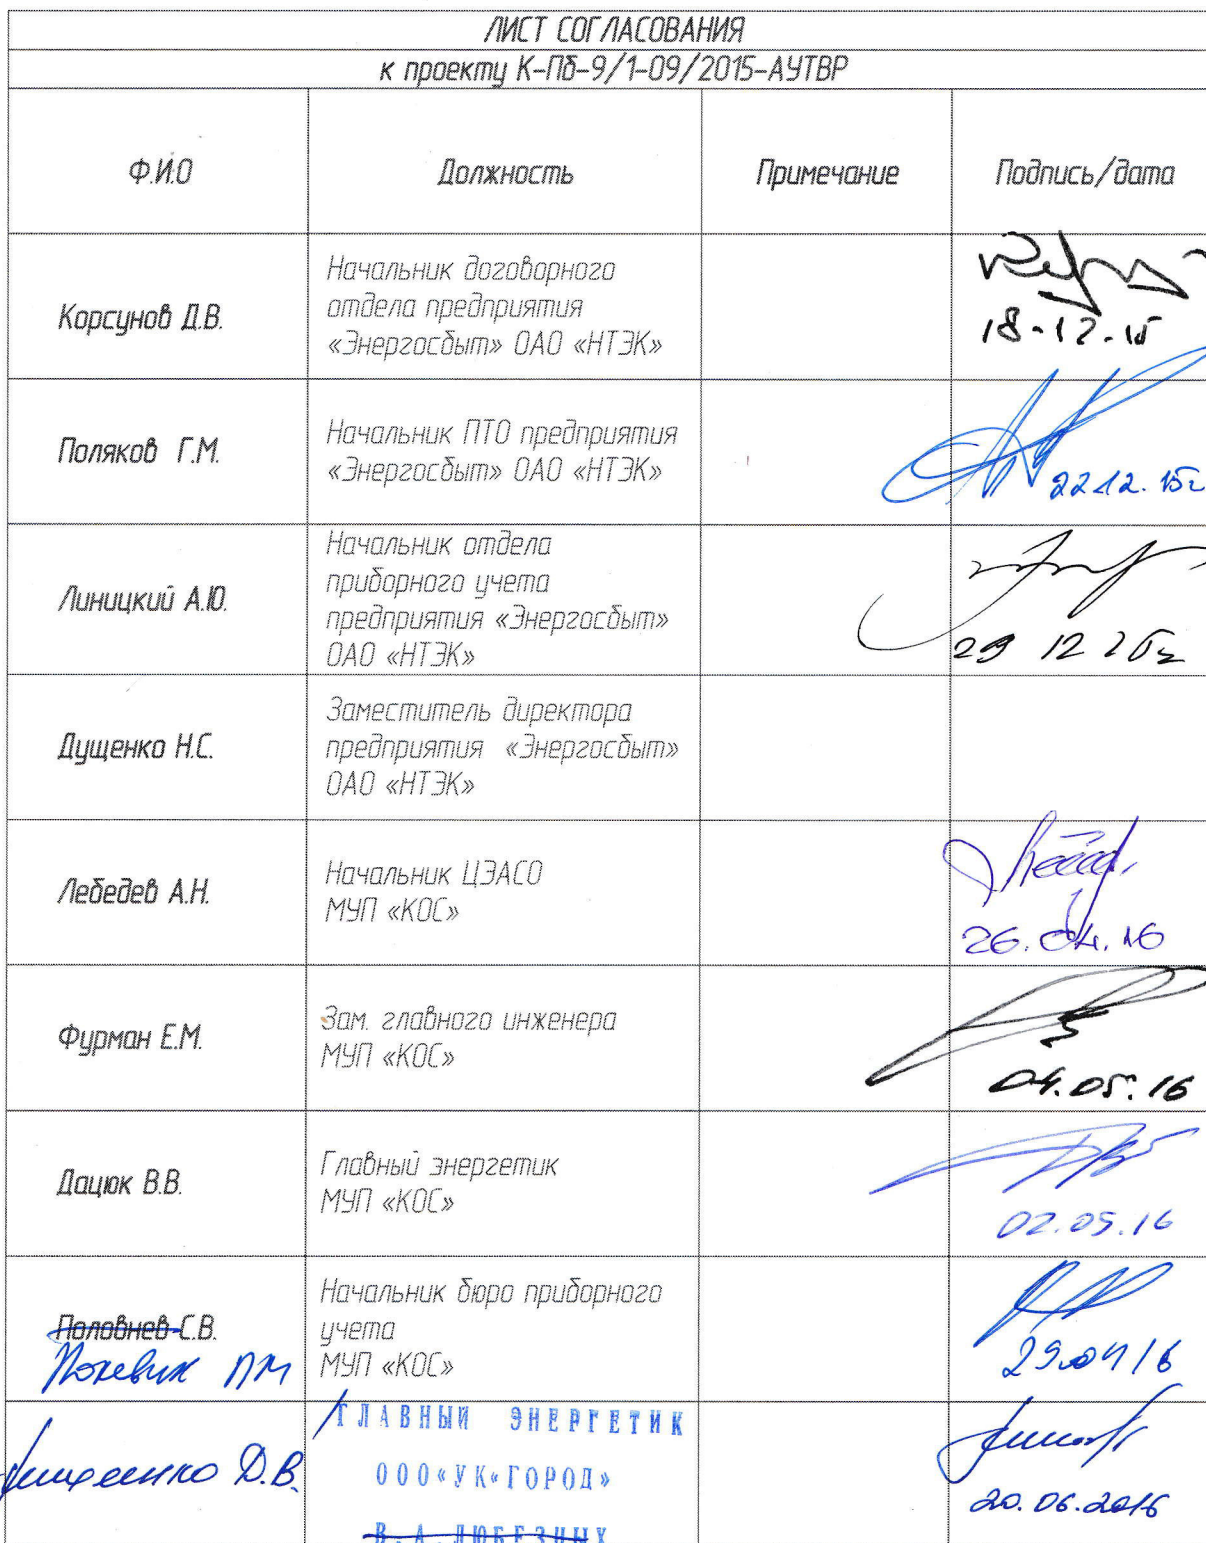 ЛИСТ СОГЛАСОВАНИЯ
к проекту К-Пб-9/1-09/2015-АУТВР
Ф.И.О Должность Примечание Подпись/дата
Корсунов Д.В.
Начальник договорного
отдела предприятия
«Энергосбыт» ОАО «НТЭК»
18-12-15
Поляков Г.М.
Начальник ПТО предприятия
«Энергосбыт» ОАО «НТЭК»
22.12.15г
Линицкий А.Ю.
Начальник отдела
приборного учета
предприятия «Энергосбыт»
ОАО «НТЭК»
29 12
Дущенко Н.С.
Заместитель директора
предприятия «Энергосбыт»
ОАО «НТЭК»
Лебедев А.Н.
Начальник ЦЭАСО
МУП «КОС»
26.04.16
Фурман Е.М.
Зам. главного инженера
МУП «КОС»
04.05.16
Дацюк В.В.
Главный энергетик
МУП «КОС»
02.05.16
Половнев С.В.
П.М
Начальник бюро приборного
учета
МУП «КОС»
29.04 16
Д.В.
ГЛАВНЫЙ ЭНЕРГЕТИК
ООО«УК«ГОРОД»
В.А.ЛЮБЕЗНЫХ
20.06.2016